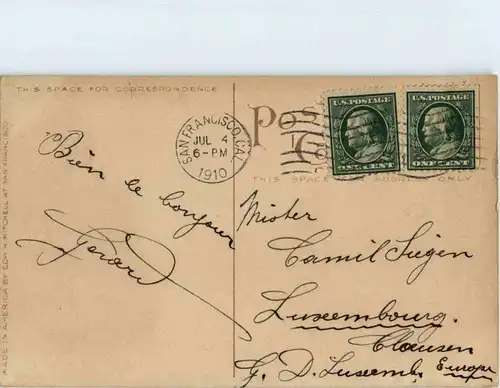 THIS SPACE FOR CORRESPONDENCE
SAN FRANCISCO, CAL.
JUL 4
6-PM
1910
U.S. POSTAGE
ONE CENT
U.S. POSTAGE
ONE CENT
THIS SPACE FOR ADDRESS ONLY
Bien le bonjour
Gérard
Mister
Camil Siegen
Luxembourg.
Clausen
G. D. Luxemb. Europe
MADE IN AMERICA BY EDW. H. MITCHELL AT SAN FRANCISCO